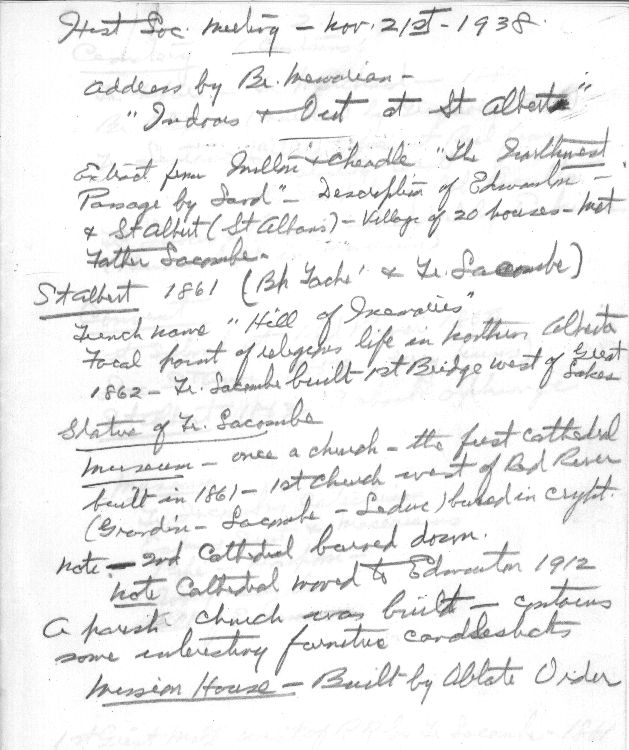 Hist Soc. Meeting - Nov. 21st - 1938.
Address by Br. Memorian -
"Indoors & Out at St Albert"
Extract from Milton & Cheadle "The Northwest
Passage by Land" - Description of Edmonton -
& St Albert (St Albans) - Village of 20 houses - Met
Father Lacombe.
St Albert 1861 (Bh Tache' & Fr. Lacombe)
French name "Hill of
Focal point of religious life in northern Alberta
1862 - Fr. Lacombe built 1st Bridge west of Great
Lakes
Statue of Fr. Lacombe
Museum - once a church - the first cathedral
built in 1861 - 1st church west of Red River
(Grandin - Lacombe - Leduc) buried in crypt.
note - 2nd Cathedral burned down.
note Cathedral moved to Edmonton 1912
A parish church was built - contains
some interesting furniture candlesticks
Mission House - Built by Oblate Order